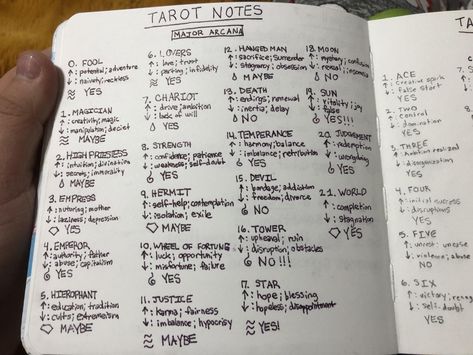 TAROT NOTES
MAJOR ARCANA
0. FOOL
↑: potential; adventure
↓: naivety; reckless
YES
1. MAGICIAN
↑: creativity; magic
↓: manipulation; deceit
MAYBE
2. HIGH PRIESTESS
↑: intuition; divination
↓: secrets; immorality
MAYBE
3. EMPRESS
↑: nuturing; mother
↓: laziness; depression
YES
4. EMPEROR
↑: authority; father
↓: abuse; capitalism
YES
5. HIEROPHANT
↑: education; tradition
↓: cults; extremeism
MAYBE
6. LOVERS
↑: love; trust
↓: parting; infidelity
YES
7. CHARIOT
↑: drive; ambition
↓: lack of will
YES
8. STRENGTH
↑: confidence; patience
↓: weakness; self-doubt
YES
9. HERMIT
↑: self-help; contemplation
↓: isolation; exile
MAYBE
10. WHEEL OF FORTUNE
↑: luck; opportunity
↓: misfortune; failure
YES
11. JUSTICE
↑: karma; fairness
↓: imbalance; hypocrisy
MAYBE
12. HANGED MAN
↑: sacrifice; surrender
↓: stagnancy; obsession
MAYBE
13. DEATH
↑: endings; renewal
↓: inertia; delay
NO
14. TEMPERANCE
↑: harmony; balance
↓: imbalance; retribution
YES
15. DEVIL
↑: bondage; addiction
↓: freedom; divorce
NO
16. TOWER
↑: upheaval; ruin
↓: disruption; obstacles
NO!!!
17. STAR
↑: hope; blessing
↓: hopeless; disappointment
YES!
18. MOON
↑: mystery; confusion
↓: reveal; insomnia
NO
19. SUN
↑: vitality; joy
↓: false
YES!!!
20. JUDGEMENT
↑: redemption
↓: wrongdoing
YES
21. WORLD
↑: completion
↓: stagnation
YES
1. ACE
↑: Creative spark
↓: false start
YES
2. TWO
↑: control
↓: domination
YES
3. THREE
↓: disorganization
YES
4. FOUR
↑: initial success
↓: disruptions
YES
5. FIVE
↑: unrest; unease
↓: violence; abuse
NO
6. SIX
↑: victory;
↓: self-doubt
YES